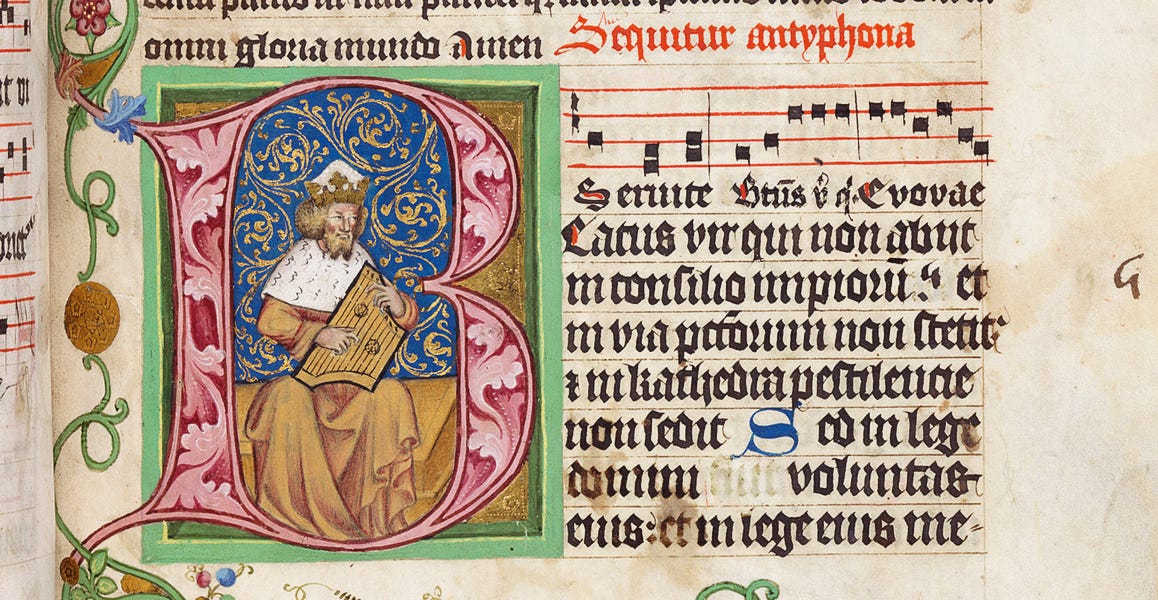 omni gloria mundo Amen Sequitur antyphona
Seruite Btūs v̄ q̄. Evovae
B Eatus vir qui non abijt
in consilio impiorū et
in via pctōrum non stetit:
⁊ in kathedra pestilencie
non sedit Sed in lege
domini fuit voluntas
eius: et in lege eius me-